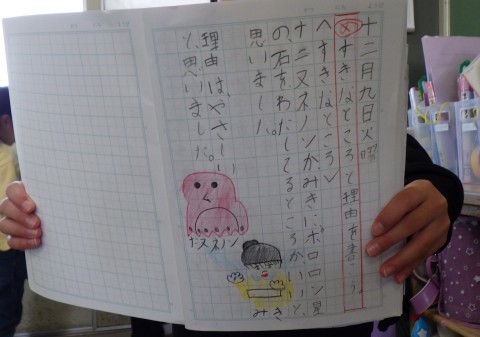 十二月九日火曜
め すきなところと理由を書こう
〈すきなところ〉
ナニヌネノンがみきにボロロン星
の石をわたしてるところがいいと
思いました。
理由は、やさしい
と思いました。
みき